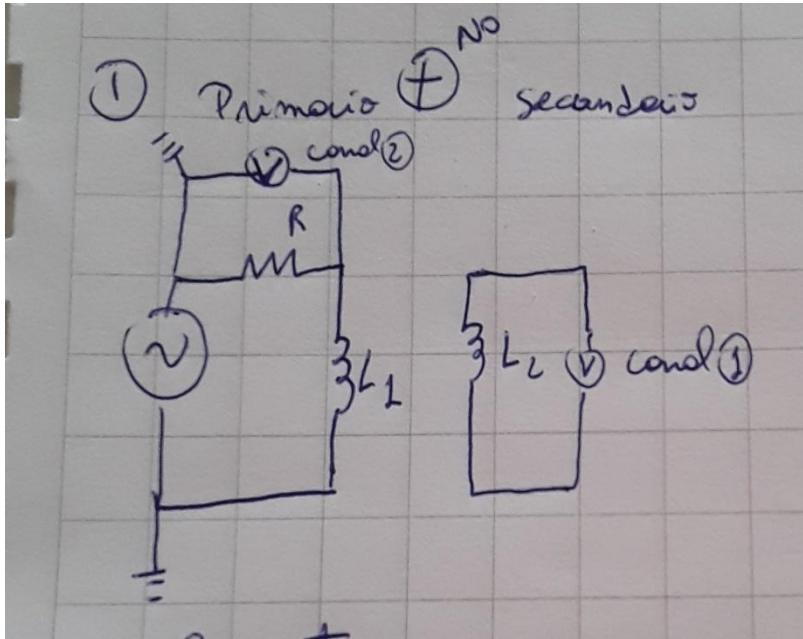 ① Primario + NO Secundario
canal ②
V
R
~
L1
L2 V canal ①